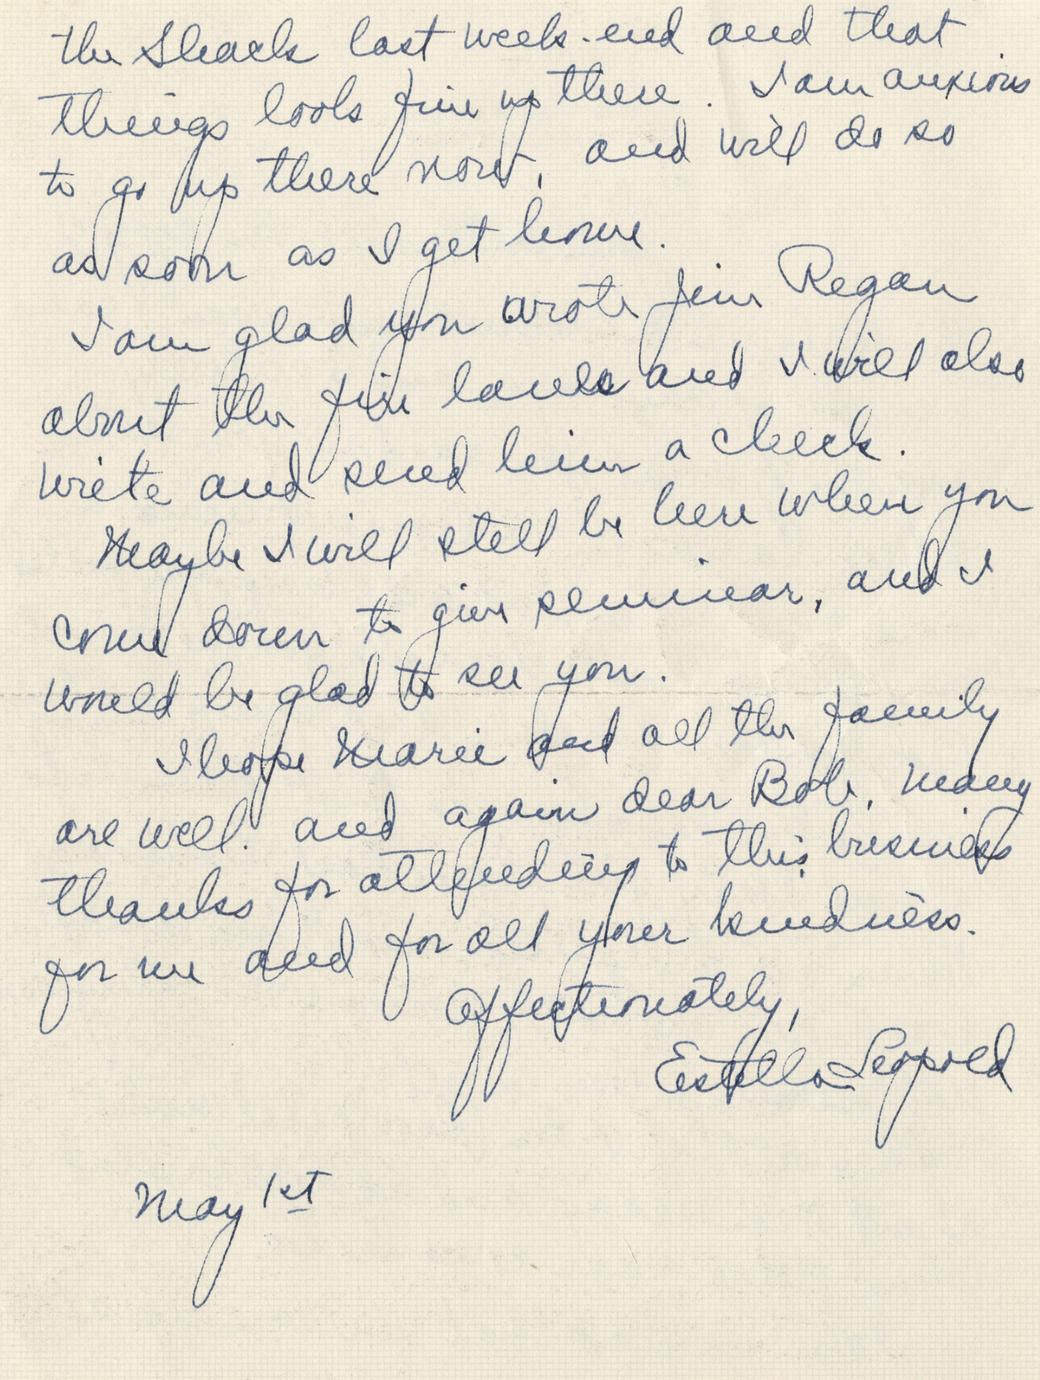 the Shack last week-end and that
things look fine up there. I am anxious
to go up there now, and will do so
as soon as I get home.
I am glad you wrote Jim Regan
about the fire lanes and I will also
write and send him a check.
Maybe I will still be here when you
come down to give seminar, and I
would be glad to see you.
I hope Marie and all the family
are well. and again dear Bob, many
thanks for attending to this business
for me and for all your kindness.
Affectionately,
Estella Leopold
May 1st